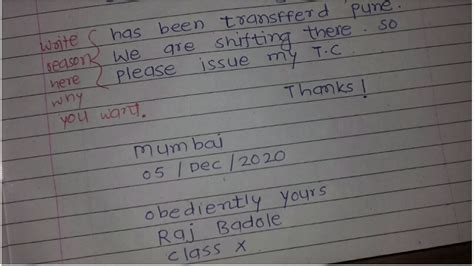 write { has been transfferd pune.
reason { we are shifting there. so
here { please issue my T.C.
why
you want.
Thanks!
Mumbai
05 / Dec / 2020
obediently yours
Raj Badole
class X